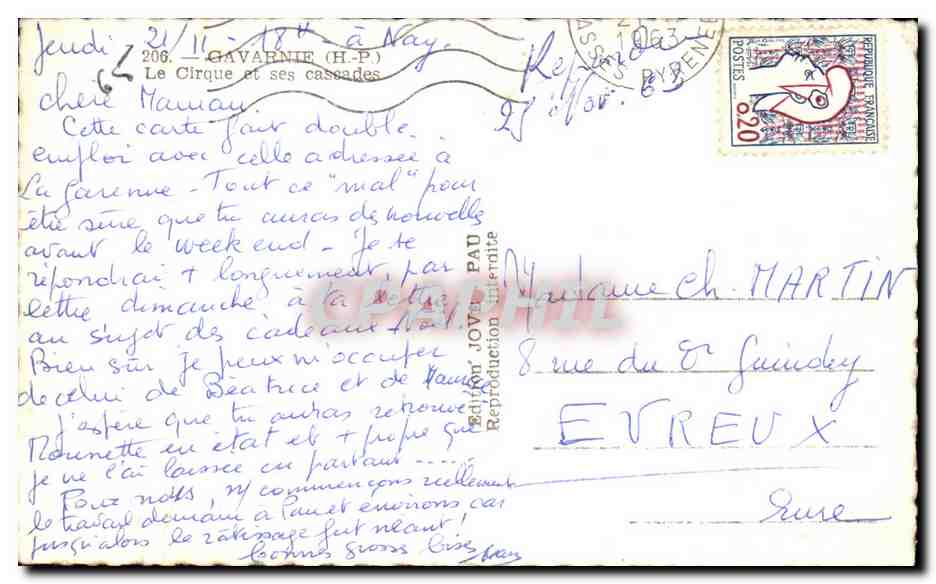 Jeudi 21/11 - 18H - à Nay.
206. — GAVARNIE (H-P.)
Le Cirque et ses cascades
chère Maman.
Cette carte fait double
emploi avec celle adressée à
La Garenne - Tout ce "mal" pour
être sûre que tu auras de nouvelle
avant le week end - Je te
répondrai + longuement, par
lettre dimanche à ta lettre
au sujet des cadeaux -
Bien sûr je peux m'occuper
de celui de Béatrice et de
J'espère que tu auras retrouvé
en état et + propre que
je ne l'ai laissée en partant - ....
Pour nous, ns commençons réellement
le travail demain à Pau et environs car
jusqu'alors le ratissage fut néant!
bonnes grosses bises
Edition JOVE, PAU
Reproduction interdite
1963
Répondu
25 Nov. 63
REPUBLIQUE FRANÇAISE
POSTES
0,20
CPAPHIL
Madame Ch. MARTIN
8 rue du Dr Guindey
EVREUX
Eure